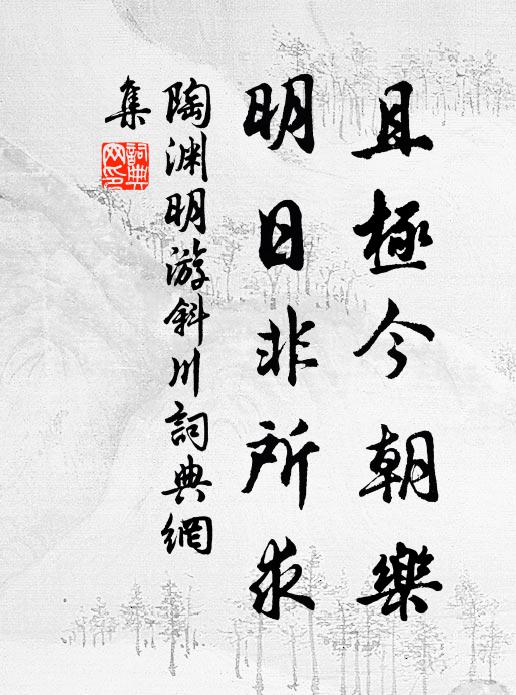 且極今朝樂
明日非所求
陶渊明游斜川詞典網
集
詞典网印